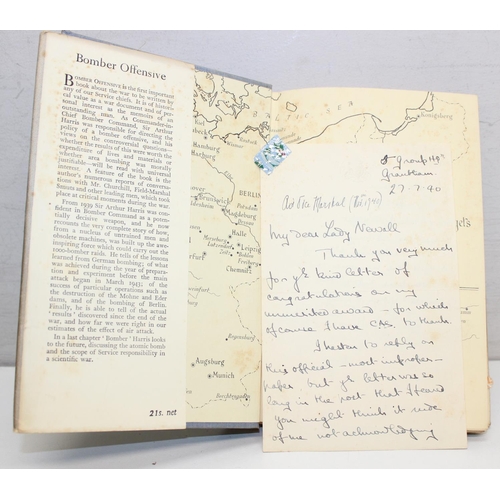 Bomber Offensive
BOMBER OFFENSIVE is the first important
book about the war to be written by
any of our Service chiefs. It is of histori-
cal value as a war document and of per-
sonal interest as the memoirs of an
outstanding man. As Commander-in-
Chief Bomber Command, Sir Arthur
Harris was responsible for directing the
policy of a bomber offensive, and his
views on the controversial questions—
whether the results of this were worth the
expenditure of lives and materials or
whether area bombing was morally
justifiable—will be read with universal
interest. A feature of the book is the
author's numerous reports of conversa-
tions with Mr. Churchill, Field-Marshal
Smuts and other leading men, which took
place at critical moments during the war.
From 1939 Sir Arthur Harris was con-
fident in Bomber Command as a poten-
tially decisive weapon, and he now
recounts the very complete story of how,
from a nucleus of untrained men and
obsolete machines, was built up the awe-
inspiring force which could carry out the
1000-bomber raids. He tells of the lessons
learned from German bombing; of what
was achieved during the year of prepara-
tion and experiment before the main
attack began in March 1943; of the
success of particular operations such as
the destruction of the Mohne and Eder
dams, and of the bombing of Berlin.
Finally, he is able to tell of the actual
'results' discovered since the end of the
war, and how far we were right in our
estimates of the effect of air attack.
In a last chapter 'Bomber' Harris looks
to the future, discussing the atomic bomb
and the scope of Service responsibility in
a scientific war.
21s. net
BALTIC SEA
Königsberg
Hamburg
Harburg
BERLIN
Potsdam
Magdeburg
Dessau
Leipzig
Dresden
Chemnitz
Regensburg
Augsburg
Munich
Berchtesgaden
5 Group HQrs
Grantham
27.7.40
My dear Lady Newall
Thank you very much
for yr kind letter of
congratulations on my
unmerited award – for which
of course I have CAS. to thank.
I hesitate to reply on
this official – most improper –
paper. but yr letter was so
long in the post that I feared
you might think it rude
of me not acknowledging